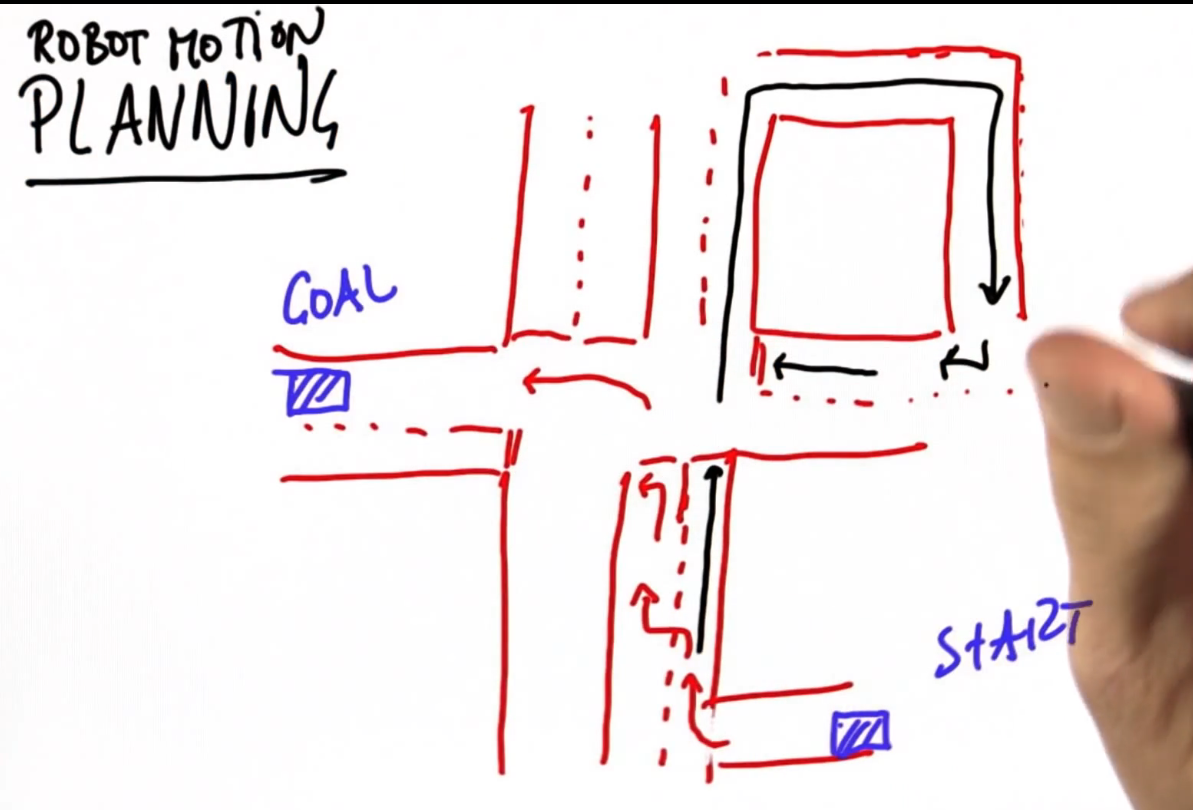 ROBOT MOTION
PLANNING
GOAL
START